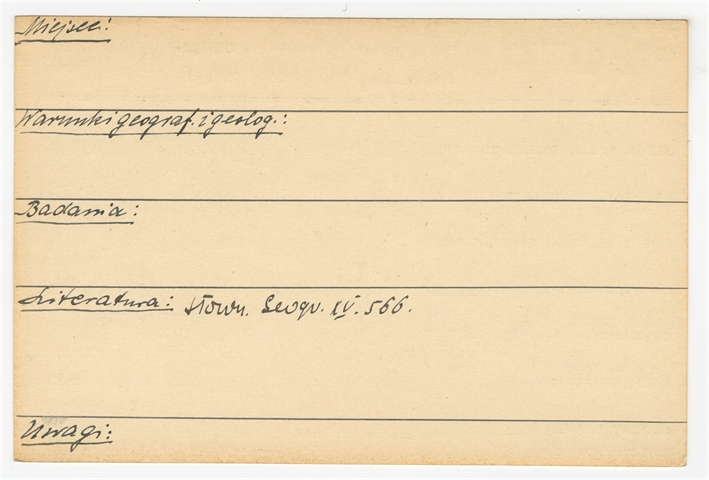 Miejsce:
Warunki geograf. i geolog.:
Badania:
Literatura: Słown. Geogr. XV. 566.
Uwagi: